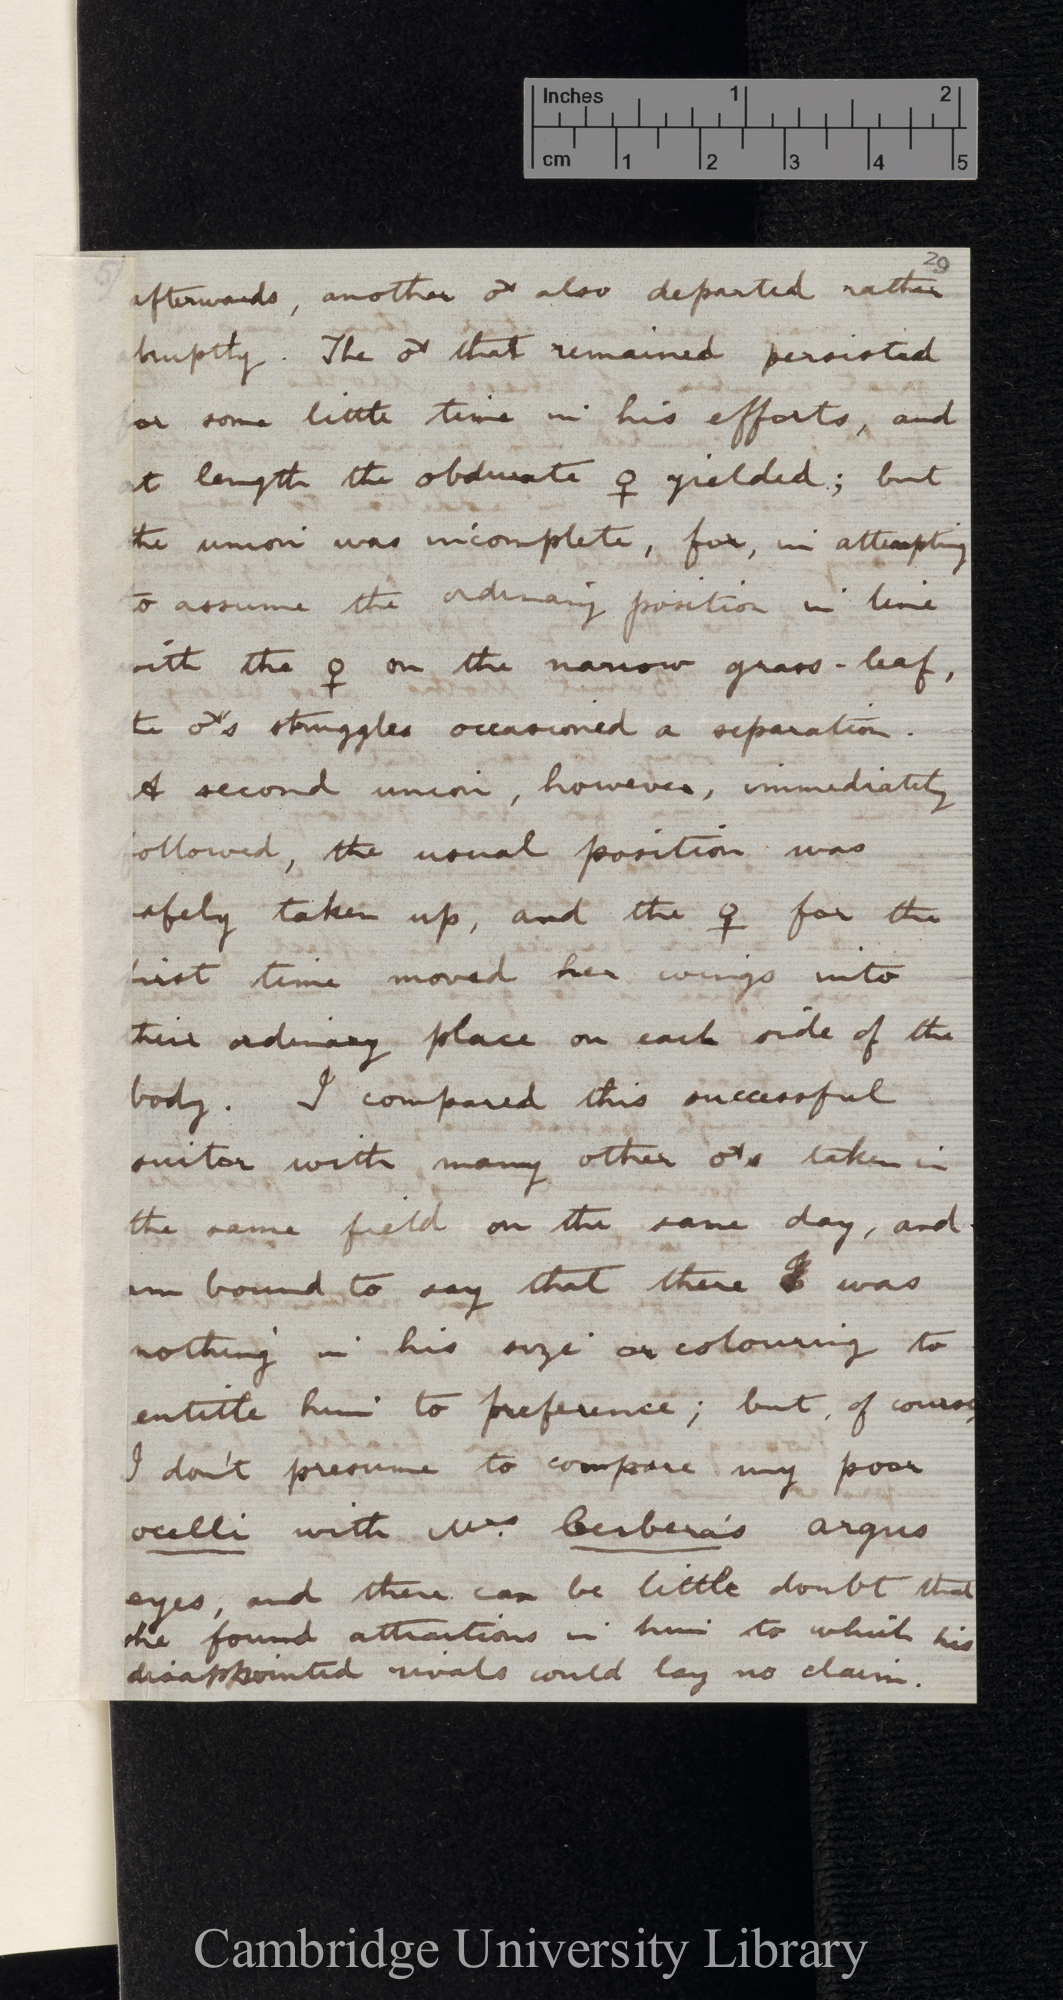 Inches 1 2
cm 1 2 3 4 5
5/ 29
afterwards, another ♂ also departed rather
bruptly. The ♂ that remained persisted
or some little time in his efforts, and
at length the obdurate ♀ yielded; but
the union was incomplete, for, in attempting
to assume the ordinary position in line
with the ♀ on the narrow grass-leaf,
the ♂'s struggles occasioned a separation.
A second union, however, immediately
followed, the usual position was
safely taken up, and the ♀ for the
first time moved her wings into
their ordinary place on each side of the
body. I compared this successful
suitor with many other ♂s taken in
the same field on the same day, and
am bound to say that there was
nothing in his size or colouring to
entitle him to preference; but, of course,
I don't presume to compare my poor
ocelli with Mrs. Cerbera's argus
eyes, and there can be little doubt that
she found attractions in him to which his
disappointed rivals could lay no claim.
Cambridge University Library